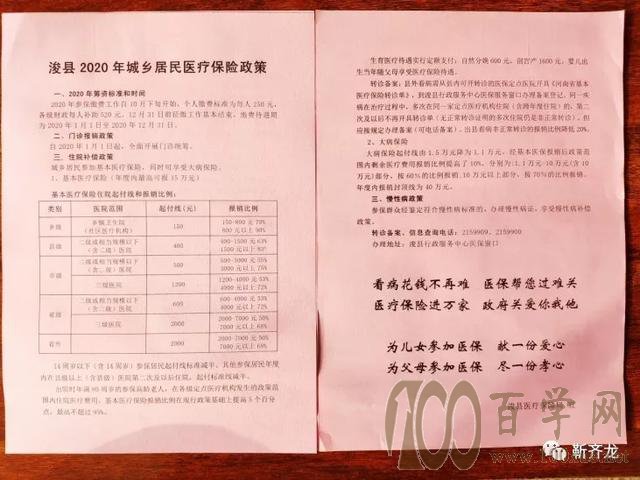 浚县2020年城乡居民医疗保险政策
一、2020年筹资标准和时间
2020年参保缴费工作自10月下旬开始，个人缴费标准为每人250元，
各级财政每人补助520元，12月31日前征缴工作基本结束，缴费待遇期
为2020年1月1日至2020年12月31日。
二、门诊报销政策
自2020年1月1日起，全面开展门诊统筹。
三、住院补偿政策
城乡居民参加基本医疗保险，同时可享受大病保险。
1、基本医疗保险（年度内最高可报15万元）
基本医疗保险住院起付线和报销比例：
类别 医院范围 起付线(元) 报销比例
乡级 乡镇卫生院（社区医疗机构） 150 150-800元70% 800元以上90%
县级 二级或相当规模以下（含二级）医院 400 400-1500元63% 1500元以上83%
市级 二级或相当规模以下（含二级）医院 500 500-3000元55% 3000元以上75%
三级医院 1200 1200-4000元53% 4000元以上72%
省级 二级或相当规模以下（含二级）医院 600 600-4000元53% 4000元以上72%
三级医院 2000 2000-7000元50% 7000元以上68%
省外 2000 2000-7000元50% 7000元以上68%
14周岁以下（含14周岁）参保居民起付线标准减半。其他参保居民年度
内在县级以上（含县级）医院第二次及以后住院，起付标准线减半。
出院时年满80周岁的参保高龄老人，在各级定点医疗机构发生的政策范
围内住院医疗费用，基本医疗保险报销比例在现行政策基础上提高5个百分
点，最高不超过95%。
生育医疗待遇实行定额支付：自然分娩600元，剖宫产1600元，婴儿出
生当年随父母享受医疗保险待遇。
转诊备案：县外看病需从县内可开转诊的医保定点医院开具《河南省基本
医疗保险转诊单》，到浚县行政服务中心医保服务窗口办理备案登记。同一疾
病在治疗过程中，多次在同一定点医疗机构住院（含跨年度住院）的，第二
次及以后不再开具转诊单（无正常转诊证明的多次住院仍是非正常转诊），但
应按规定办理备案（可电话备案）。出县看病非正常转诊的报销比例降低20%。
2、大病保险
大病保险起付线由1.5万元降为1.1万元，经基本医保报销后政策范
围内剩余医疗费用报销比例提高了10%，分别为：1.1万-10万元(含10
万元)部分，按60%的比例报销，10万元以上部分，按70%的比例报销。
年度内报销封顶线为40万元。
三、慢性病政策
参保群众经鉴定符合慢性病标准的，办理慢性病证，享受慢性病补偿
政策。
转诊备案、信息查询电话：2159909、2159900
办理地址：浚县行政服务中心医保窗口
看病花钱不再难 医保帮您过难关
医疗保险进万家 政府关爱你我他
为儿女参加医保 献一份爱心
为父母参加医保 尽一份孝心
浚县医疗保障局 宣
100百学网
靳齐龙